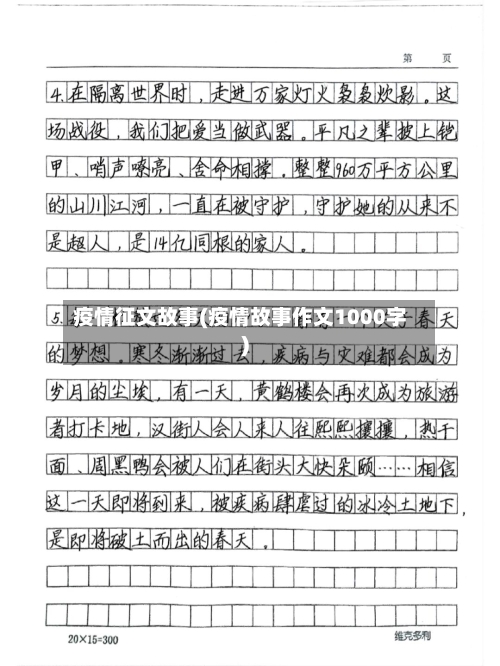 第 页
4.在隔离世界时，走进万家灯火袅袅炊影。这
场战役，我们把爱当做武器。平凡之辈披上铠
甲、哨声嘹亮、舍命相撑。整整960万平方公里
的山川江河，一直在被守护，守护她的从来不
是超人，是14亿同根的家人。
疫情征文故事(疫情故事作文1000字
)
5.
春天
的梦想。寒冬渐渐过去，疾病与灾难都会成为
岁月的尘埃，有一天，黄鹤楼会再次成为旅游
者打卡地，汉街人会人来人往熙熙攘攘，热干
面、周黑鸭会被人们在街头大快朵颐……相信
这一天即将到来，被疾病肆虐过的冰冷土地下，
是即将破土而出的春天。
20×15=300 维克多利